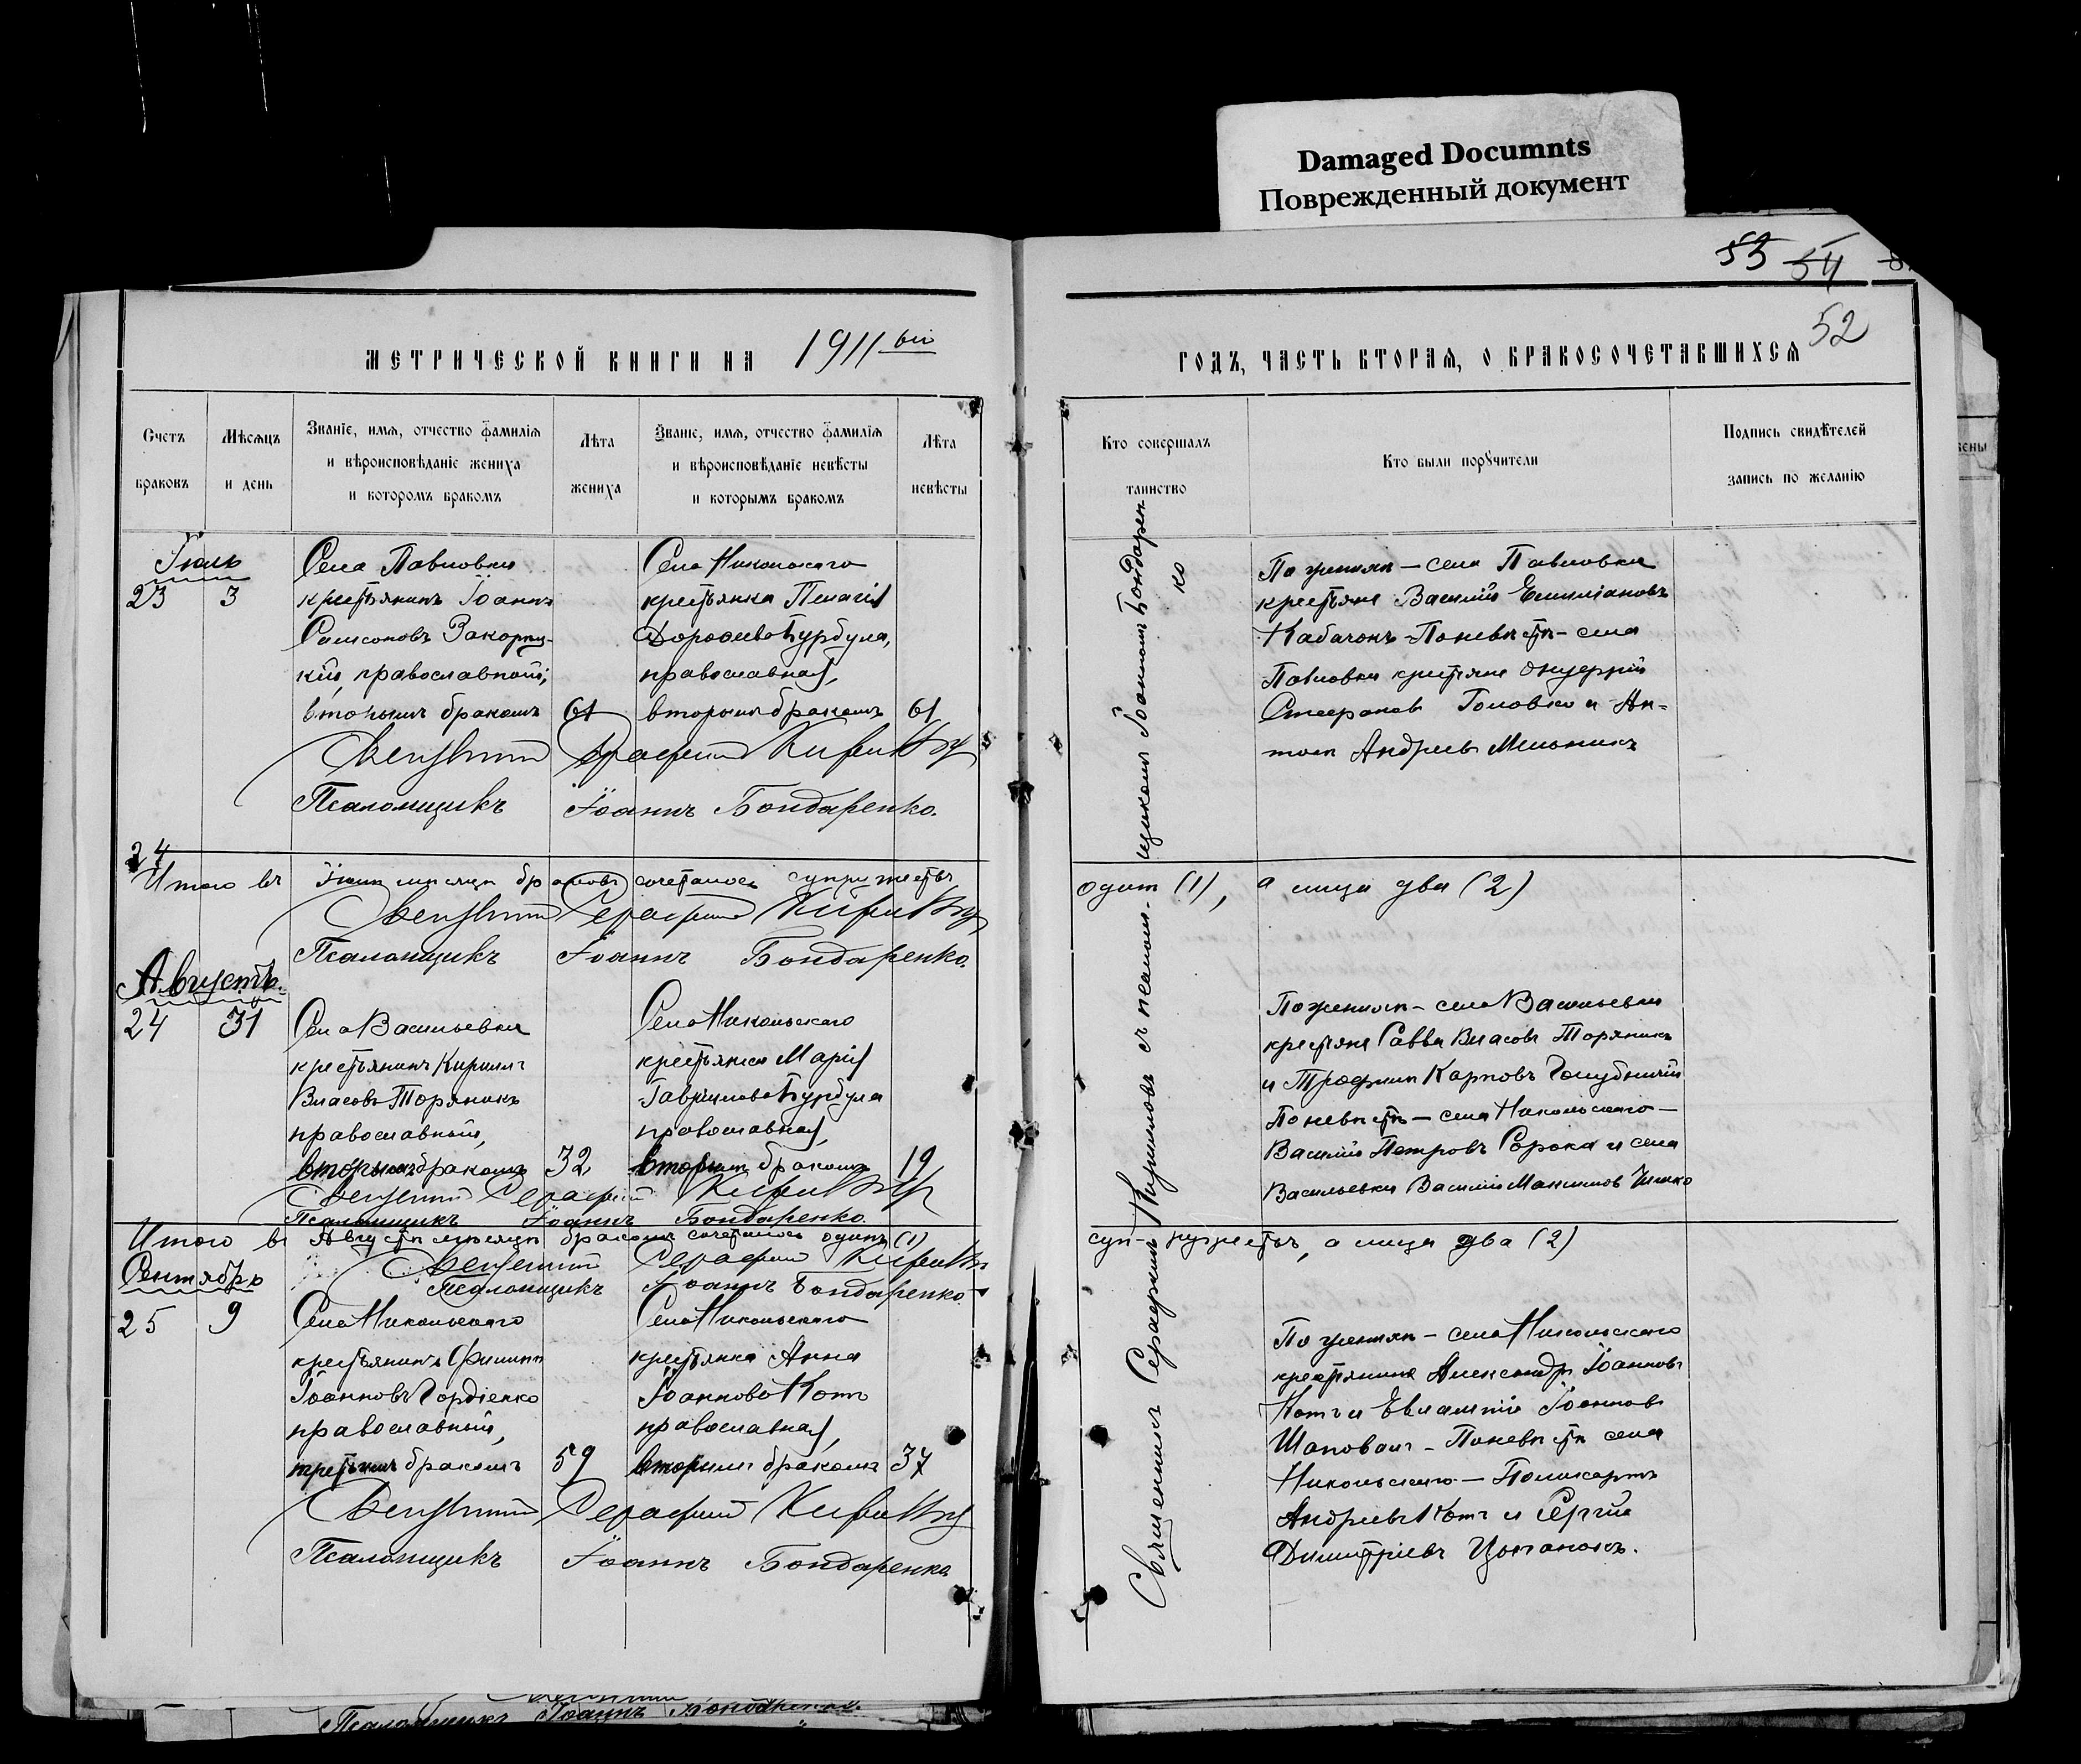 Damaged Documnts
Поврежденный документ
53 54
52
МЕТРИЧЕСКОЙ КНИГИ НА 1911ый
ГОДЪ, ЧАСТЬ ВТОРАЯ, О БРАКОСОЧЕТАВШИХСЯ
Счетъ браковъ
Мѣсяцъ и день
Званіе, имя, отчество фамилія
и вѣроисповѣданіе жениха
и которомъ бракомъ
Лѣта жениха
Званіе, имя, отчество фамилія
и вѣроисповѣданіе невѣсты
и которымъ бракомъ
Лѣта невѣсты
Кто совершалъ таинство
Кто были поручители
Подпись свидѣтелей
запись по желанію
Іюль
23 3
Села Павловки
крестьянинъ Іоаннъ
Самсоновъ
православный,
вторымъ бракомъ
61
Села Никольскаго
крестьянка Пелагія
Дороѳеева Бурбула,
православная,
вторымъ бракомъ
61
Священникъ Серафимъ
Псаломщикъ Іоаннъ Бондаренко.
По женихѣ – села Павловки
крестьяне Василій Емиліановъ
Кабачокъ – По невѣстѣ – села
Павловки крестьяне Онуфрій
Стефановъ Головко и Ан-
тонъ Андреевъ Мельникъ
24
Итого въ Іюлѣ мѣсяцѣ браковъ сочеталось супружествъ
одит (1), а лица два (2)
Священникъ Серафимъ
Псаломщикъ Іоаннъ Бондаренко.
Августъ.
24 31
Села Васильевки
крестьянинъ Кириллъ
Власовъ Торяникъ
православный,
вторымъ бракомъ
32
Села Никольскаго
крестьянка Марія
Гавріилова Бурбула
православная,
вторымъ бракомъ
19
Священникъ Серафимъ
Псаломщикъ Іоаннъ Бондаренко.
По женихѣ – села Васильевки
крестьяне Савва Власовъ Торяникъ
и Трофимъ Карповъ Голубничій
По невѣстѣ – села Никольскаго –
Василій Петровъ Сорока и села
Васильевки Василій Максимовъ
Итого въ Августѣ мѣсяцѣ бракомъ сочеталось одинъ (1)
супружествъ, а лица два (2)
Священникъ Серафимъ
Псаломщикъ Іоаннъ Бондаренко.
Сентябрь
25 9
Села Никольскаго
крестьянинъ Филиппъ
Іоанновъ Гордіенко
православный,
третьимъ бракомъ
59
Села Никольскаго
крестьянка Анна
Іоаннова Котъ
православная,
вторымъ бракомъ
37
Священникъ Серафимъ
Псаломщикъ Іоаннъ Бондаренко
По женихѣ – села Никольскаго
крестьяне Александръ Іоанновъ
Котъ и Евлампій Іоанновъ
Шаповалъ – По невѣстѣ села
Никольскаго – Поликарпъ
Андреевъ Котъ и Сергій
Димитріевъ Цыганокъ.
Священникъ Серафимъ съ псалом-
щикомъ Іоанномъ Бондарен-
ко
Псаломщикъ Іоаннъ Бондаренко.